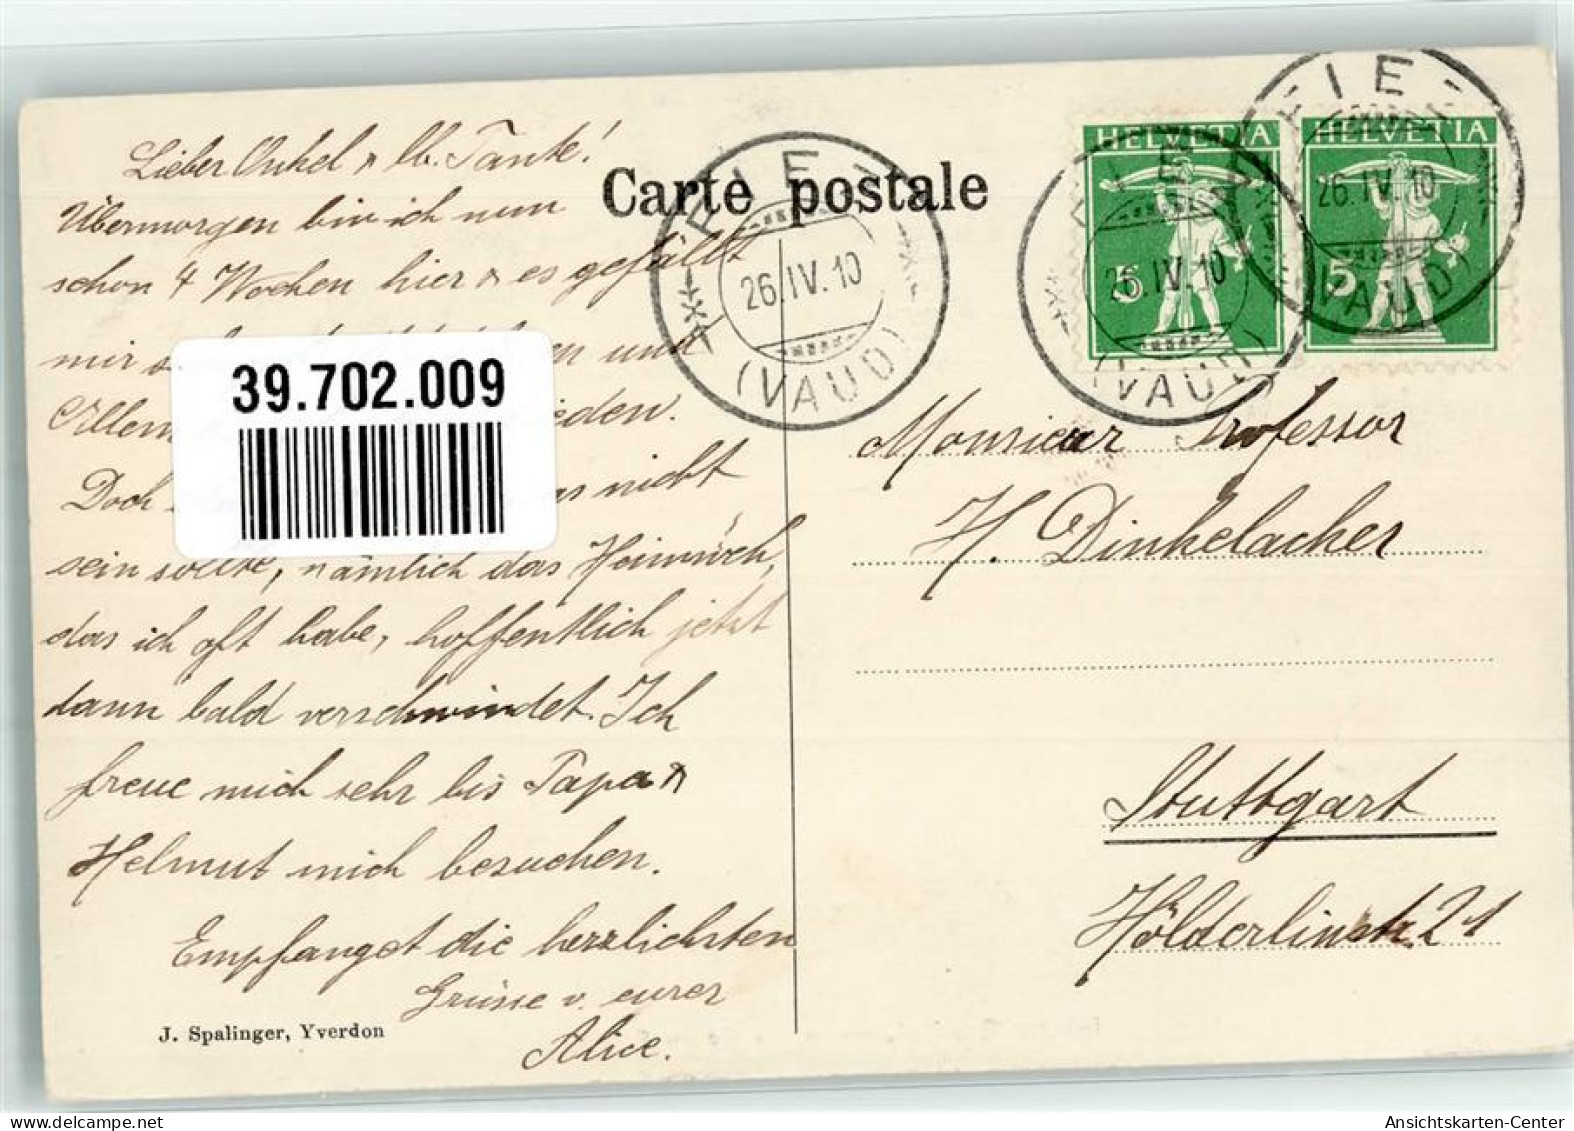 Lieber Onkel & lb. Tante!
Übermorgen bin ich nun
schon 4 Wochen hier & es gefällt
mir und
Allem
Doch nicht
sein sollte, nämlich das Heimweh,
das ich oft habe, hoffentlich jetzt
dann bald verschwindet. Ich
freue mich sehr bis Papa &
Helmut mich besuchen.
Empfanget die herzlichsten
Grüsse v. eurer
Alice.
J. Spalinger, Yverdon
39.702.009
Carte postale
26.IV.10
(VAUD)
HELVETIA
5
26.IV.10
(VAUD)
HELVETIA
5
26.IV.10
(VAUD)
Monsieur Professor
H. Dinkelacker
Stuttgart
Hölderlinstr. 21
Ansichtskarten-Center